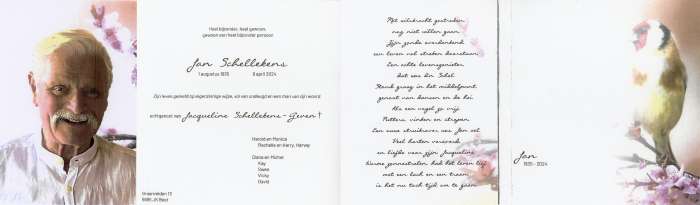 Heel bijzonder, heel gewoon,
gewoon een heel bijzonder persoon
Jan Schellekens
1 augustus 1935 8 april 2024
Zijn leven geleefd op eigenzinnige wijze, vol van ondeugd en een man van zijn woord
echtgenoot van Jacqueline Schellekens-Geven †
Harold en Monica
Rachelle en Harry, Harvey
Diana en Michel
Kay
Sawa
Vicky
David
5685 JK Best
Met wilskracht gestreden
nog niet willen gaan
Zijn zonde overdenkend
een leven vol streken doorstaan
Een echte levensgenieter
dat was hij
Stond graag in het middelpunt
genoot van dansen en de hei
Als een vogel zo vrij
Putters vinden en strepen
Een ouwe struikrover van Jan vol
Veel harten veroverd
en liefde voor zijn Jacqueline
kleine zonnestralen had het leven lief
met een lach en een traan
is het nu toch tijd om te gaan
Jan
1935 - 2024